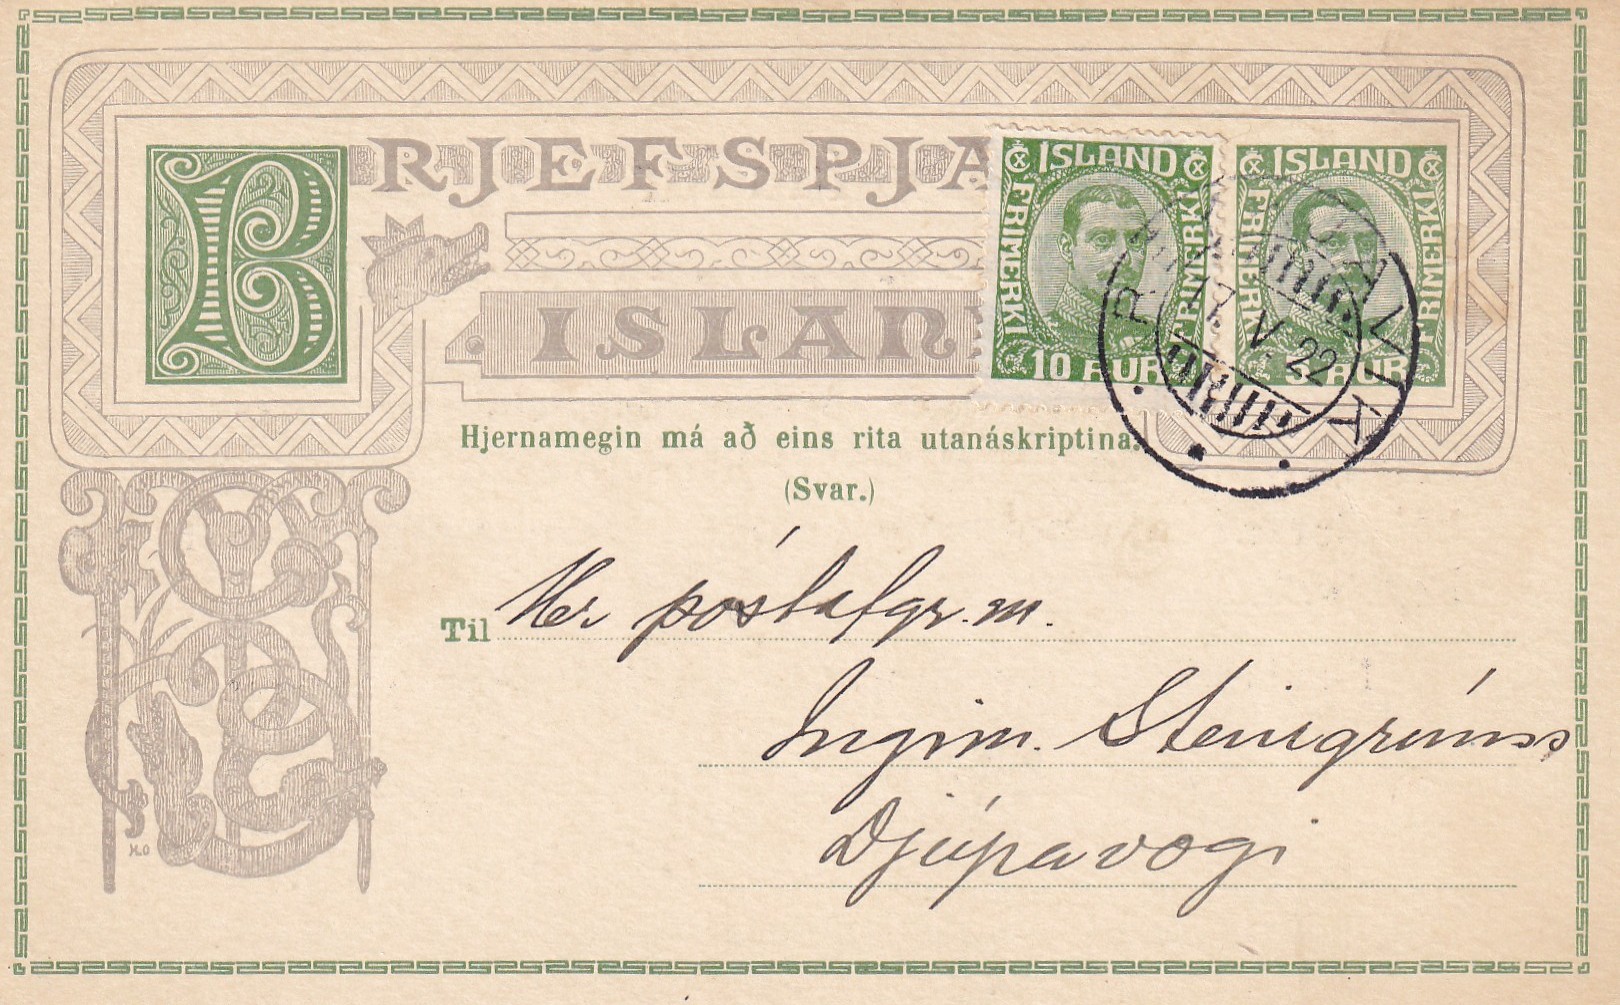 BRJEFSPJA
ISLAN
ÍSLAND
FRIMERKI FRIMERKI
10 AUR
ÍSLAND
FRIMERKI FRIMERKI
5 AUR
REYKJAVIK
17. V. 22
Hjernamegin má að eins rita utanáskriptina.
(Svar.)
Til Hr póstafgr.m.
Ingim. Steingrímss
Djúpavogi